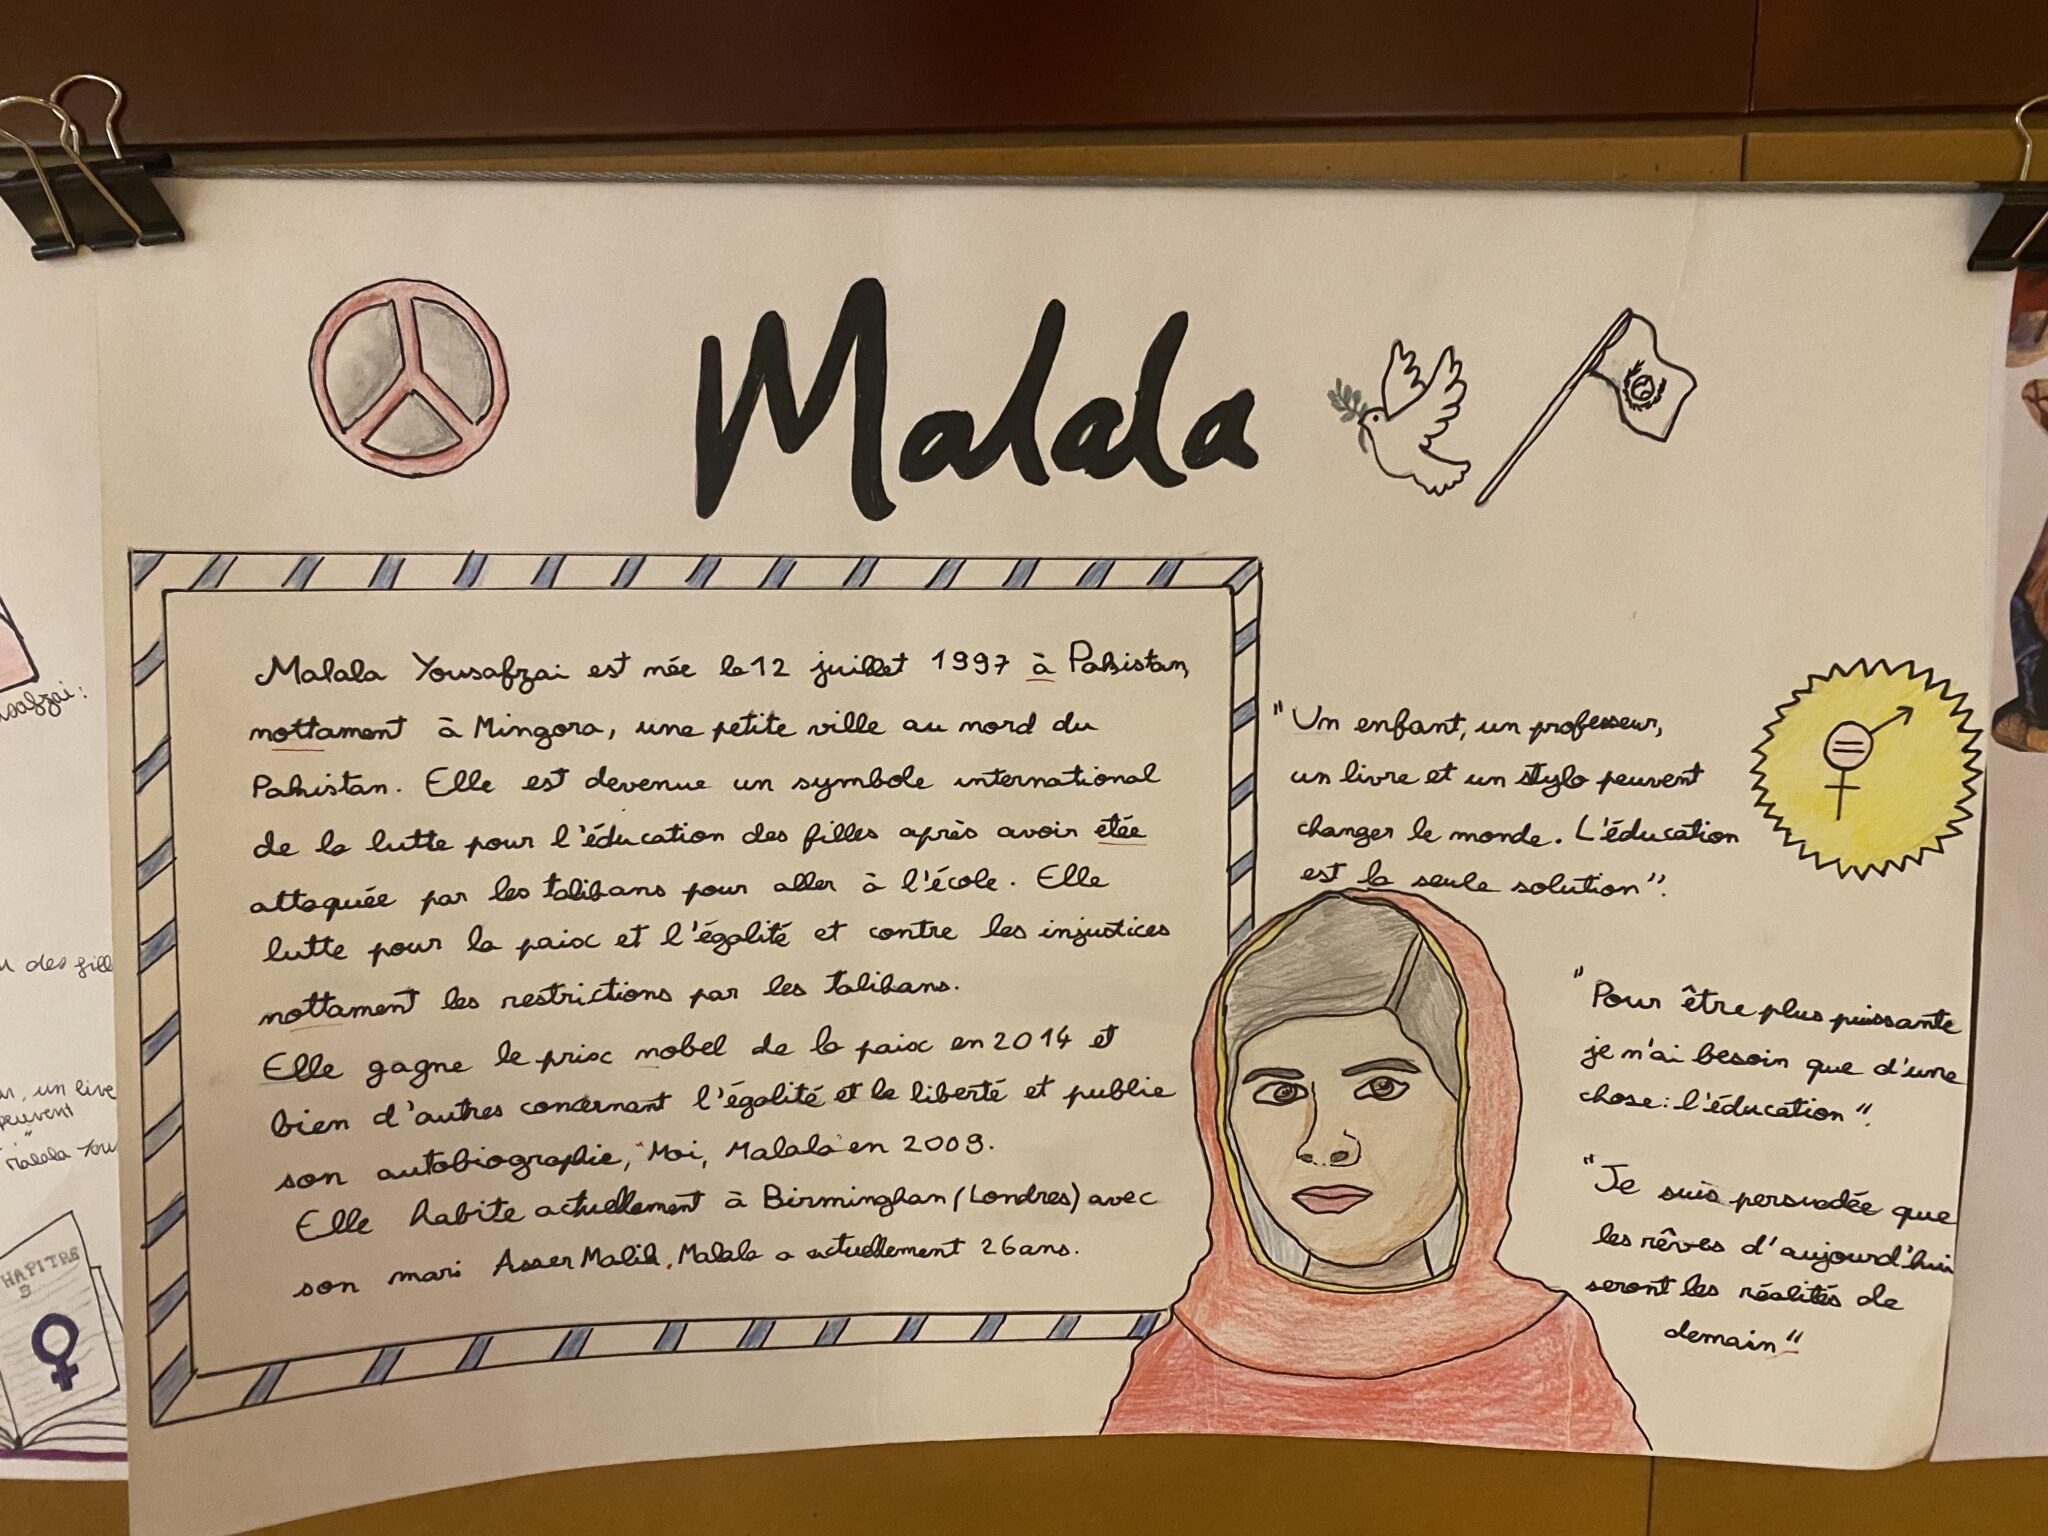 Malala
Malala Yousafzai est née le 12 juillet 1997 à Pakistan,
nottament à Mingora, une petite ville au nord du
Pakistan. Elle est devenue un symbole international
de la lutte pour l'éducation des filles après avoir etée
attaquée par les talibans pour aller à l'école. Elle
lutte pour la paix et l'égalité et contre les injustices
nottament les restrictions par les talibans.
Elle gagne le prix nobel de la paix en 2014 et
bien d'autres concernant l'égalité et la liberté et publie
son autobiographie, "Moi, Malala" en 2009.
Elle habite actuellement à Birminghan (Londres) avec
son mari Asser Malik. Malala a actuellement 26 ans.
"Un enfant, un professeur,
un livre et un stylo peuvent
changer le monde. L'éducation
est la seule solution".
"Pour être plus puissante
je n'ai besoin que d'une
chose: l'éducation".
"Je suis persuadée que
les rêves d'aujourd'hui
seront les réalités de
demain"
safzai:
des fill
un, un live
peuvent
Malala You
HAPITRE
3